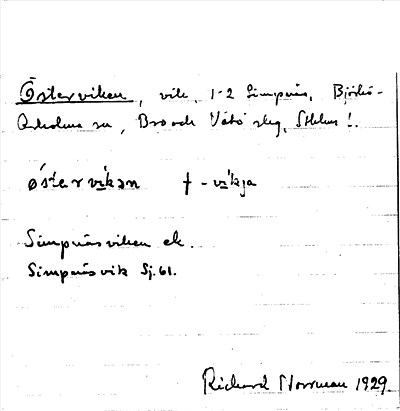 Österviken, vik, 1-2 Simpnäs, Björkö-
Arholma sn, Bro och Vätö slg, Sthlms l.
östervikan † -vikja
Simpnäsviken ek.
Simpnäsvik Sj. 61.
Richard Norrman 1929